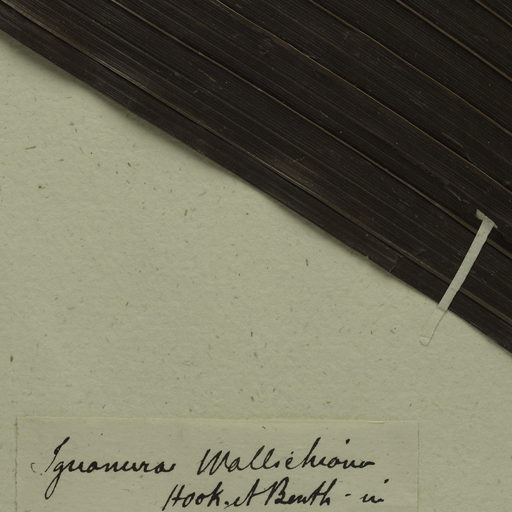 Iguanura Wallichiana
Hook. et Benth - in